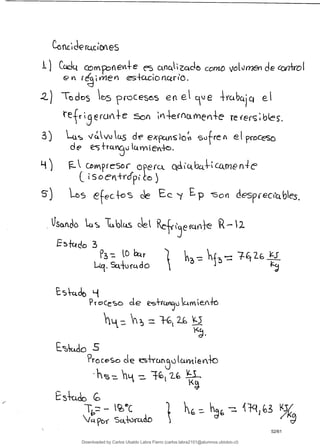 Concideraciones
1.) Cada componente es analizado como volumen de control
en régimen estacionario.
2) Todos los procesos en el que trabaja el
refrigerante son internamente reversibles.
3) Las válvulas de expansión sufren el proceso
de estrangulamiento.
4) El compresor opera adiabaticamente
(isoentrópico)
5) Los efectos de Ec y Ep son despreciables.
Usando las Tablas del Refrigerante R-12
Estado 3
P3 = 10 bar
Liq. Saturado
h3 = hf3 = 76,26 KJ/Kg
Estado 4
Proceso de estrangulamiento
h4 = h3 = 76,26 KJ/Kg.
Estado 5
Proceso de estrangulamiento
h5 = h4 = 76,26 KJ/Kg
Estado 6
T6 = -18°C
Vapor Saturado
h6 = hg6 = 179,63 KJ/Kg
52/61
Downloaded by Carlos Usaldo Labra Fierro (carlos.labra2101@alumnos.ubiobio.cl)